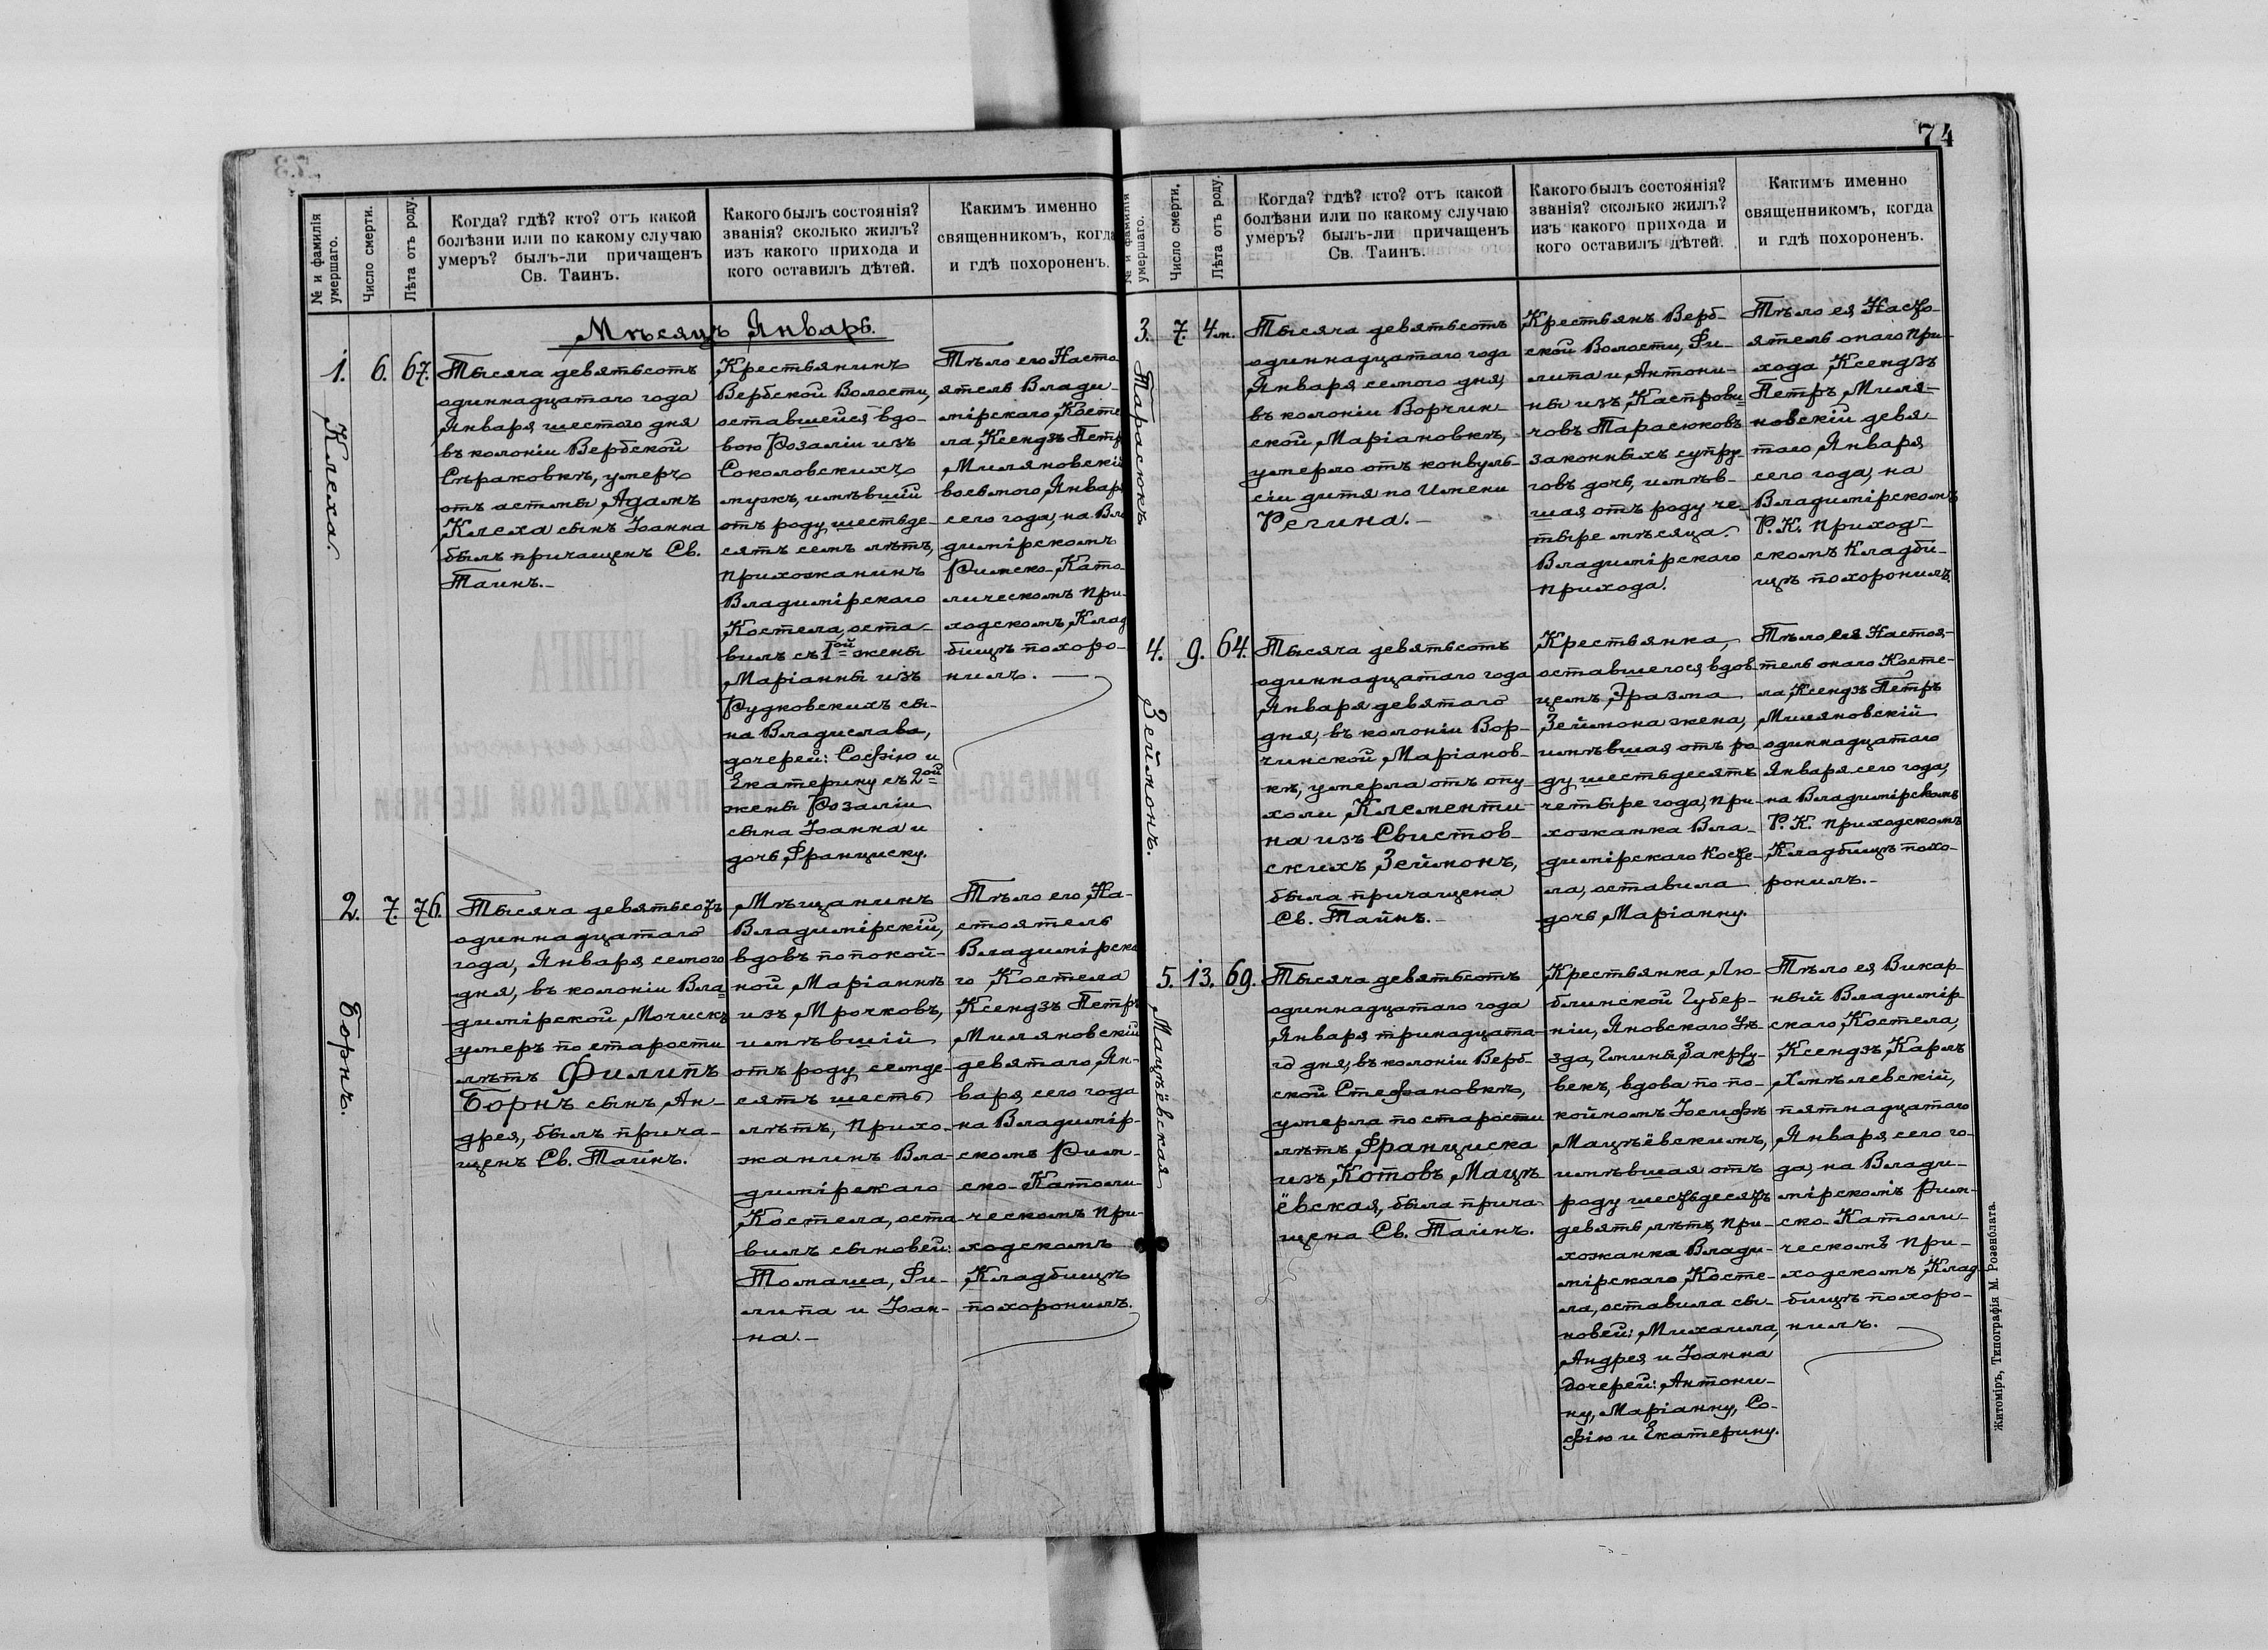 74
№ и фамилія
умершаго.
Число смерти.
Лѣта отъ роду.
Когда? гдѣ? кто? отъ какой
болѣзни или по какому случаю
умеръ? былъ-ли причащенъ
Св. Таинъ.
Какого былъ состоянія?
званія? сколько жилъ?
изъ какого прихода и
кого оставилъ дѣтей.
Какимъ именно
священникомъ, когда
и гдѣ похороненъ.
Мѣсяцъ Январь.
1.
Клеха.
6.
67.
Тысяча девятьсотъ
одиннадцатаго года
Января шестого дня
въ колоніи Вербской
Сѣраковкѣ, умеръ
отъ астмы Адамъ
Клеха сынъ Іоанна
былъ причащенъ Св.
Таинъ.-
Крестьянинъ
Вербской Волости,
оставшейся вдо-
вою Розаліи изъ
Соколовскихъ
мужъ, имѣвшій
отъ роду шестьде-
сятъ семъ лѣтъ,
прихожанинъ
Владимірскаго
Костела, оста-
вилъ съ 1ой жены
Маріанны изъ
Рудковскихъ сы-
на Владислава,
дочерей: Софію и
Екатерину съ 2ой
жены Розаліи
сына Іоанна и
дочь Франциску.
Тѣло его Насто-
ятель Влади-
мірскаго Косте-
ла, Ксендзъ Петръ
Миляновскій
восьмого Января
сего года, на Вла
димірскомъ
Римско-Като-
лическомъ при-
ходскомъ Клад
бищѣ похоро-
нилъ.
2.
Борнъ.
7.
76.
Тысяча девятьсотъ
одиннадцатаго
года, Января семого
дня, въ колоніи Вла=
димірской Мочискъ
умеръ по старости
лѣтъ Филипъ
Борнъ сынъ Ан-
дрея, былъ прича-
щенъ Св. Таинъ.
Мѣщанинъ
Владимірскій,
вдовъ по покой-
ной Маріаннѣ
изъ Мрочковъ,
имѣвшій
отъ роду семде-
сятъ шесть
лѣтъ, прихо-
жанинъ Вла-
димірскаго
Костела, оста-
вилъ сыновей:
Томаша, Фи-
липа и Іоан-
на.-
Тѣло его, На-
стоятель
Владимірска
го Костела
Ксендзъ Петръ
Миляновскій
девятаго, Ян-
варя, сего года
на Владимір-
скомъ Рим-
ско-Католи-
ческомъ при-
ходскомъ
Кладбищѣ
похоронилъ.
№ и фамилія
умершаго.
Число смерти.
Лѣта отъ роду.
Когда? гдѣ? кто? отъ какой
болѣзни или по какому случаю
умеръ? былъ-ли причащенъ
Св. Таинъ.
Какого былъ состоянія?
званія? сколько жилъ?
изъ какого прихода и
кого оставилъ дѣтей.
Какимъ именно
священникомъ, когда
и гдѣ похороненъ.
3.
Тарасюкъ
7.
4м.
Тысяча девятьсотъ
одиннадцатаго года
Января, семого дня,
въ колоніи Ворчин-
ской, Маріановкѣ,
умерло отъ конвуль-
сіи дитя по Имени
Регина.-
Крестьянъ Верб-
ской Волости, Фи-
липа и Антони-
ны изъ Кастрови=
човъ Тарасюковъ
законныхъ супру-
говъ дочь, имѣв-
шая отъ роду че-
тыре мѣсяца.
Владимірскаго
прихода.
Тѣло ея Насто-
ятель онаго при-
хода Ксендзъ
Петръ Миля-
новскій девя-
того, Января,
сего года, на
Владимірскомъ
Р. К. приход-
скомъ Кладби-
щѣ похоронилъ.
4.
Зеймонъ.
9.
64.
Тысяча девятьсотъ
одиннадцатаго года
Января девятаго
дня, въ колоніи Вор-
чинской, Маріанов-
кѣ, умерла отъ опу-
холи Клементи-
на изъ Свистов-
скихъ Зеймонъ,
была причащена
Св. Таинъ.-
Крестьянка,
оставшегося вдов-
цемъ Эразма
Зеймона жена,
имѣвшая отъ ро-
ду шестьдесятъ
четыре года, при-
хожанка Вла-
димірскаго Косте-
ла, оставила
дочь Маріанну.
Тѣло ея Настоя-
тель онаго Косте-
ла, Ксендзъ Петръ
Миляновскій
одиннадцатаго
Января сего года,
на Владимірскомъ
Р. К. приходскомъ
Кладбищѣ похо-
ронилъ.-
5.
Мацѣёвская
13.
69.
Тысяча девятьсотъ
одиннадцатаго года
Января тринадцата-
го дня, въ колоніи Верб-
ской Стефановкѣ,
умерла по старости
лѣтъ Франциска
изъ Котовъ Мацѣ-
ёвская, была прича-
щена Св. Таинъ.
Крестьянка Лю-
блинской Губер-
ніи, Яновскаго Уѣ-
зда, Гмины Закржу-
векъ, вдова по по-
койномъ Іосифѣ
Мацѣёвскимъ,
имѣвшая отъ
роду шестьдесятъ
девять лѣтъ, при-
хожанка Влади-
мірскаго Косте-
ла, оставила сы-
новей: Михаила,
Андрея и Іоанна
дочерей: Антони-
ну, Маріанну, Со-
фію и Екатерину.
Тѣло ея Викар-
ный Владимір
скаго Костела,
Ксендзъ Карлъ
Хмѣлевскій,
пятнадцатаго
Января, сего го-
да, на Влади-
мірскомъ Рим-
ско-Католи-
ческомъ при-
ходскомъ Клад-
бищѣ похоро-
нилъ.
Житоміръ, Типографія М. Розенблата.